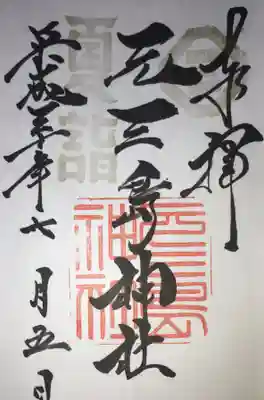 奉拝
元三島神社
元三島神社
夏詣
平成三十年七月五日